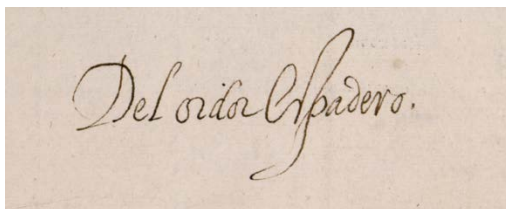 Del oidor Espadero.